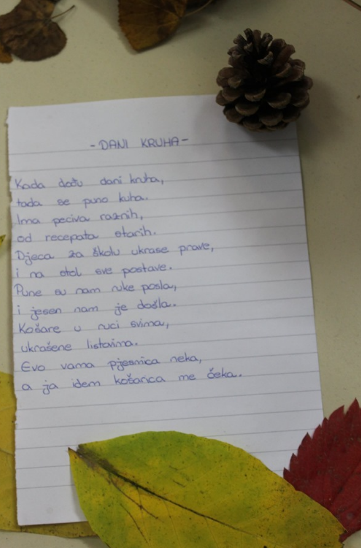 - DANI KRUHA -
Kada dođu dani kruha,
tada se puno kuha.
Ima peciva raznih,
od recepata starih.
Djeca za školu ukrase prave,
i na stol sve postave.
Pune su nam ruke posla,
i jesen nam je došla.
Košare u ruci svima,
ukrašene listovima.
Evo vama pjesmica neka,
a ja idem košarica me čeka.